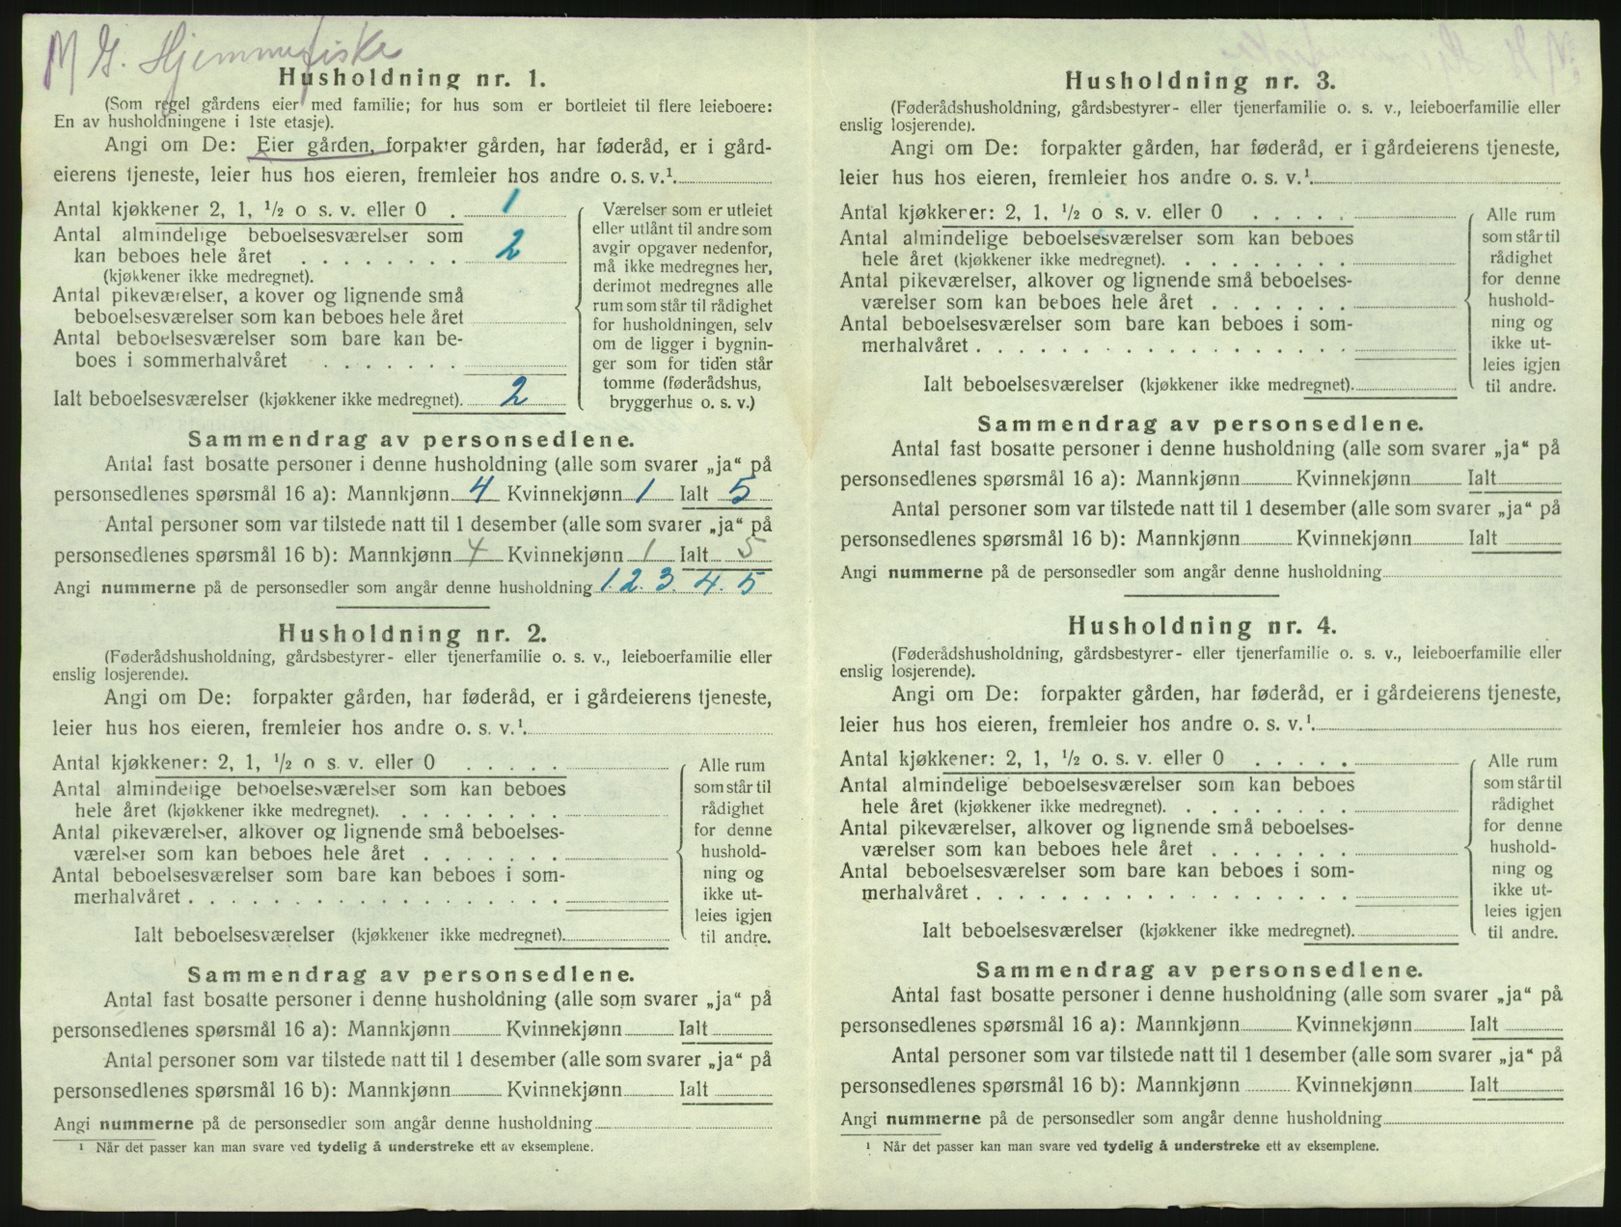 M G. Hjemmefiske
Husholdning nr. 1.
(Som regel gårdens eier med familie; for hus som er bortleiet til flere leieboere:
En av husholdningene i 1ste etasje).
Angi om De: Eier gården, forpakter gården, har føderåd, er i gård-
eierens tjeneste, leier hus hos eieren, fremleier hos andre o. s. v.¹.
Antal kjøkkener 2, 1, ½ o s. v. eller 0 . 1
Antal almindelige beboelsesværelser som
kan beboes hele året . . . . . . . . 2
(kjøkkener ikke medregnet).
Antal pikeværelser, a kover og lignende små
beboelsesværelser som kan beboes hele året
Antal beboelsesværelser som bare kan be-
boes i sommerhalvåret . . . . . . .
Ialt beboelsesværelser (kjøkkener ikke medregnet). 2
Værelser som er utleiet
eller utlånt til andre som
avgir opgaver nedenfor,
må ikke medregnes her,
derimot medregnes alle
rum som står til rådighet
for husholdningen, selv
om de ligger i bygnin-
ger som for tiden står
tomme (føderådshus,
bryggerhus o. s. v.)
Sammendrag av personsedlene.
Antal fast bosatte personer i denne husholdning (alle som svarer „ja“ på
personsedlenes spørsmål 16 a): Mannkjønn 4 Kvinnekjønn 1 Ialt 5
Antal personer som var tilstede natt til 1 desember (alle som svarer „ja“ på
personsedlenes spørsmål 16 b): Mannkjønn 4 Kvinnekjønn 1 Ialt 5
Angi nummerne på de personsedler som angår denne husholdning 1. 2. 3. 4. 5
Husholdning nr. 2.
(Føderådshusholdning, gårdsbestyrer- eller tjenerfamilie o. s. v., leieboerfamilie eller
enslig losjerende).
Angi om De: forpakter gården, har føderåd, er i gårdeierens tjeneste,
leier hus hos eieren, fremleier hos andre o. s. v.¹.
Antal kjøkkener: 2, 1, ½ o s. v. eller 0 . . . . .
Antal almindelige beboelsesværelser som kan beboes
hele året (kjøkkener ikke medregnet). . . . . . . . .
Antal pikeværelser, alkover og lignende små beboelses-
værelser som kan beboes hele året . . . . . . .
Antal beboelsesværelser som bare kan beboes i som-
merhalvåret . . . . . . . . . . . . . . . . . . .
Ialt beboelsesværelser (kjøkkener ikke medregnet).
Alle rum
som står til
rådighet
for denne
hushold-
ning og
ikke ut-
leies igjen
til andre.
Sammendrag av personsedlene.
Antal fast bosatte personer i denne husholdning (alle som svarer „ja“ på
personsedlenes spørsmål 16 a): Mannkjønn Kvinnekjønn Ialt
Antal personer som var tilstede natt til 1 desember (alle som svarer „ja“ på
personsedlenes spørsmål 16 b): Mannkjønn Kvinnekjønn Ialt
Angi nummerne på de personsedler som angår denne husholdning
¹ Når det passer kan man svare ved tydelig å understreke ett av eksemplene.
Husholdning nr. 3.
(Føderådshusholdning, gårdsbestyrer- eller tjenerfamilie o. s. v., leieboerfamilie eller
enslig losjerende).
Angi om De: forpakter gården, har føderåd, er i gårdeierens tjeneste,
leier hus hos eieren, fremleier hos andre o. s. v.¹.
Antal kjøkkener: 2, 1, ½ o s. v. eller 0 . . . . .
Antal almindelige beboelsesværelser som kan beboes
hele året (kjøkkener ikke medregnet). . . . . . . . .
Antal pikeværelser, alkover og lignende små beboelses-
værelser som kan beboes hele året . . . . . . .
Antal beboelsesværelser som bare kan beboes i som-
merhalvåret . . . . . . . . . . . . . . . . . . .
Ialt beboelsesværelser (kjøkkener ikke medregnet).
Alle rum
som står til
rådighet
for denne
hushold-
ning og
ikke ut-
leies igjen
til andre.
Sammendrag av personsedlene.
Antal fast bosatte personer i denne husholdning (alle som svarer „ja“ på
personsedlenes spørsmål 16 a): Mannkjønn Kvinnekjønn Ialt
Antal personer som var tilstede natt til 1 desember (alle som svarer „ja“ på
personsedlenes spørsmål 16 b): Mannkjønn Kvinnekjønn Ialt
Angi nummerne på de personsedler som angår denne husholdning
Husholdning nr. 4.
(Føderådshusholdning, gårdsbestyrer- eller tjenerfamilie o. s. v., leieboerfamilie eller
enslig losjerende).
Angi om De: forpakter gården, har føderåd, er i gårdeierens tjeneste,
leier hus hos eieren, fremleier hos andre o. s. v.¹.
Antal kjøkkener: 2, 1, ½ o. s. v. eller 0 . . . . .
Antal almindelige beboelsesværelser som kan beboes
hele året (kjøkkener ikke medregnet). . . . . . . . .
Antal pikeværelser, alkover og lignende små beboelses-
værelser som kan beboes hele året . . . . . . .
Antal beboelsesværelser som bare kan beboes i som-
merhalvåret . . . . . . . . . . . . . . . . . . .
Ialt beboelsesværelser (kjøkkener ikke medregnet).
Alle rum
som står til
rådighet
for denne
hushold-
ning og
ikke ut-
leies igjen
til andre.
Sammendrag av personsedlene.
Antal fast bosatte personer i denne husholdning (alle som svarer „ja“ på
personsedlenes spørsmål 16 a): Mannkjønn Kvinnekjønn Ialt
Antal personer som var tilstede natt til 1 desember (alle som svarer „ja“ på
personsedlenes spørsmål 16 b): Mannkjønn Kvinnekjønn Ialt
Angi nummerne på de personsedler som angår denne husholdning
¹ Når det passer kan man svare ved tydelig å understreke ett av eksemplene.